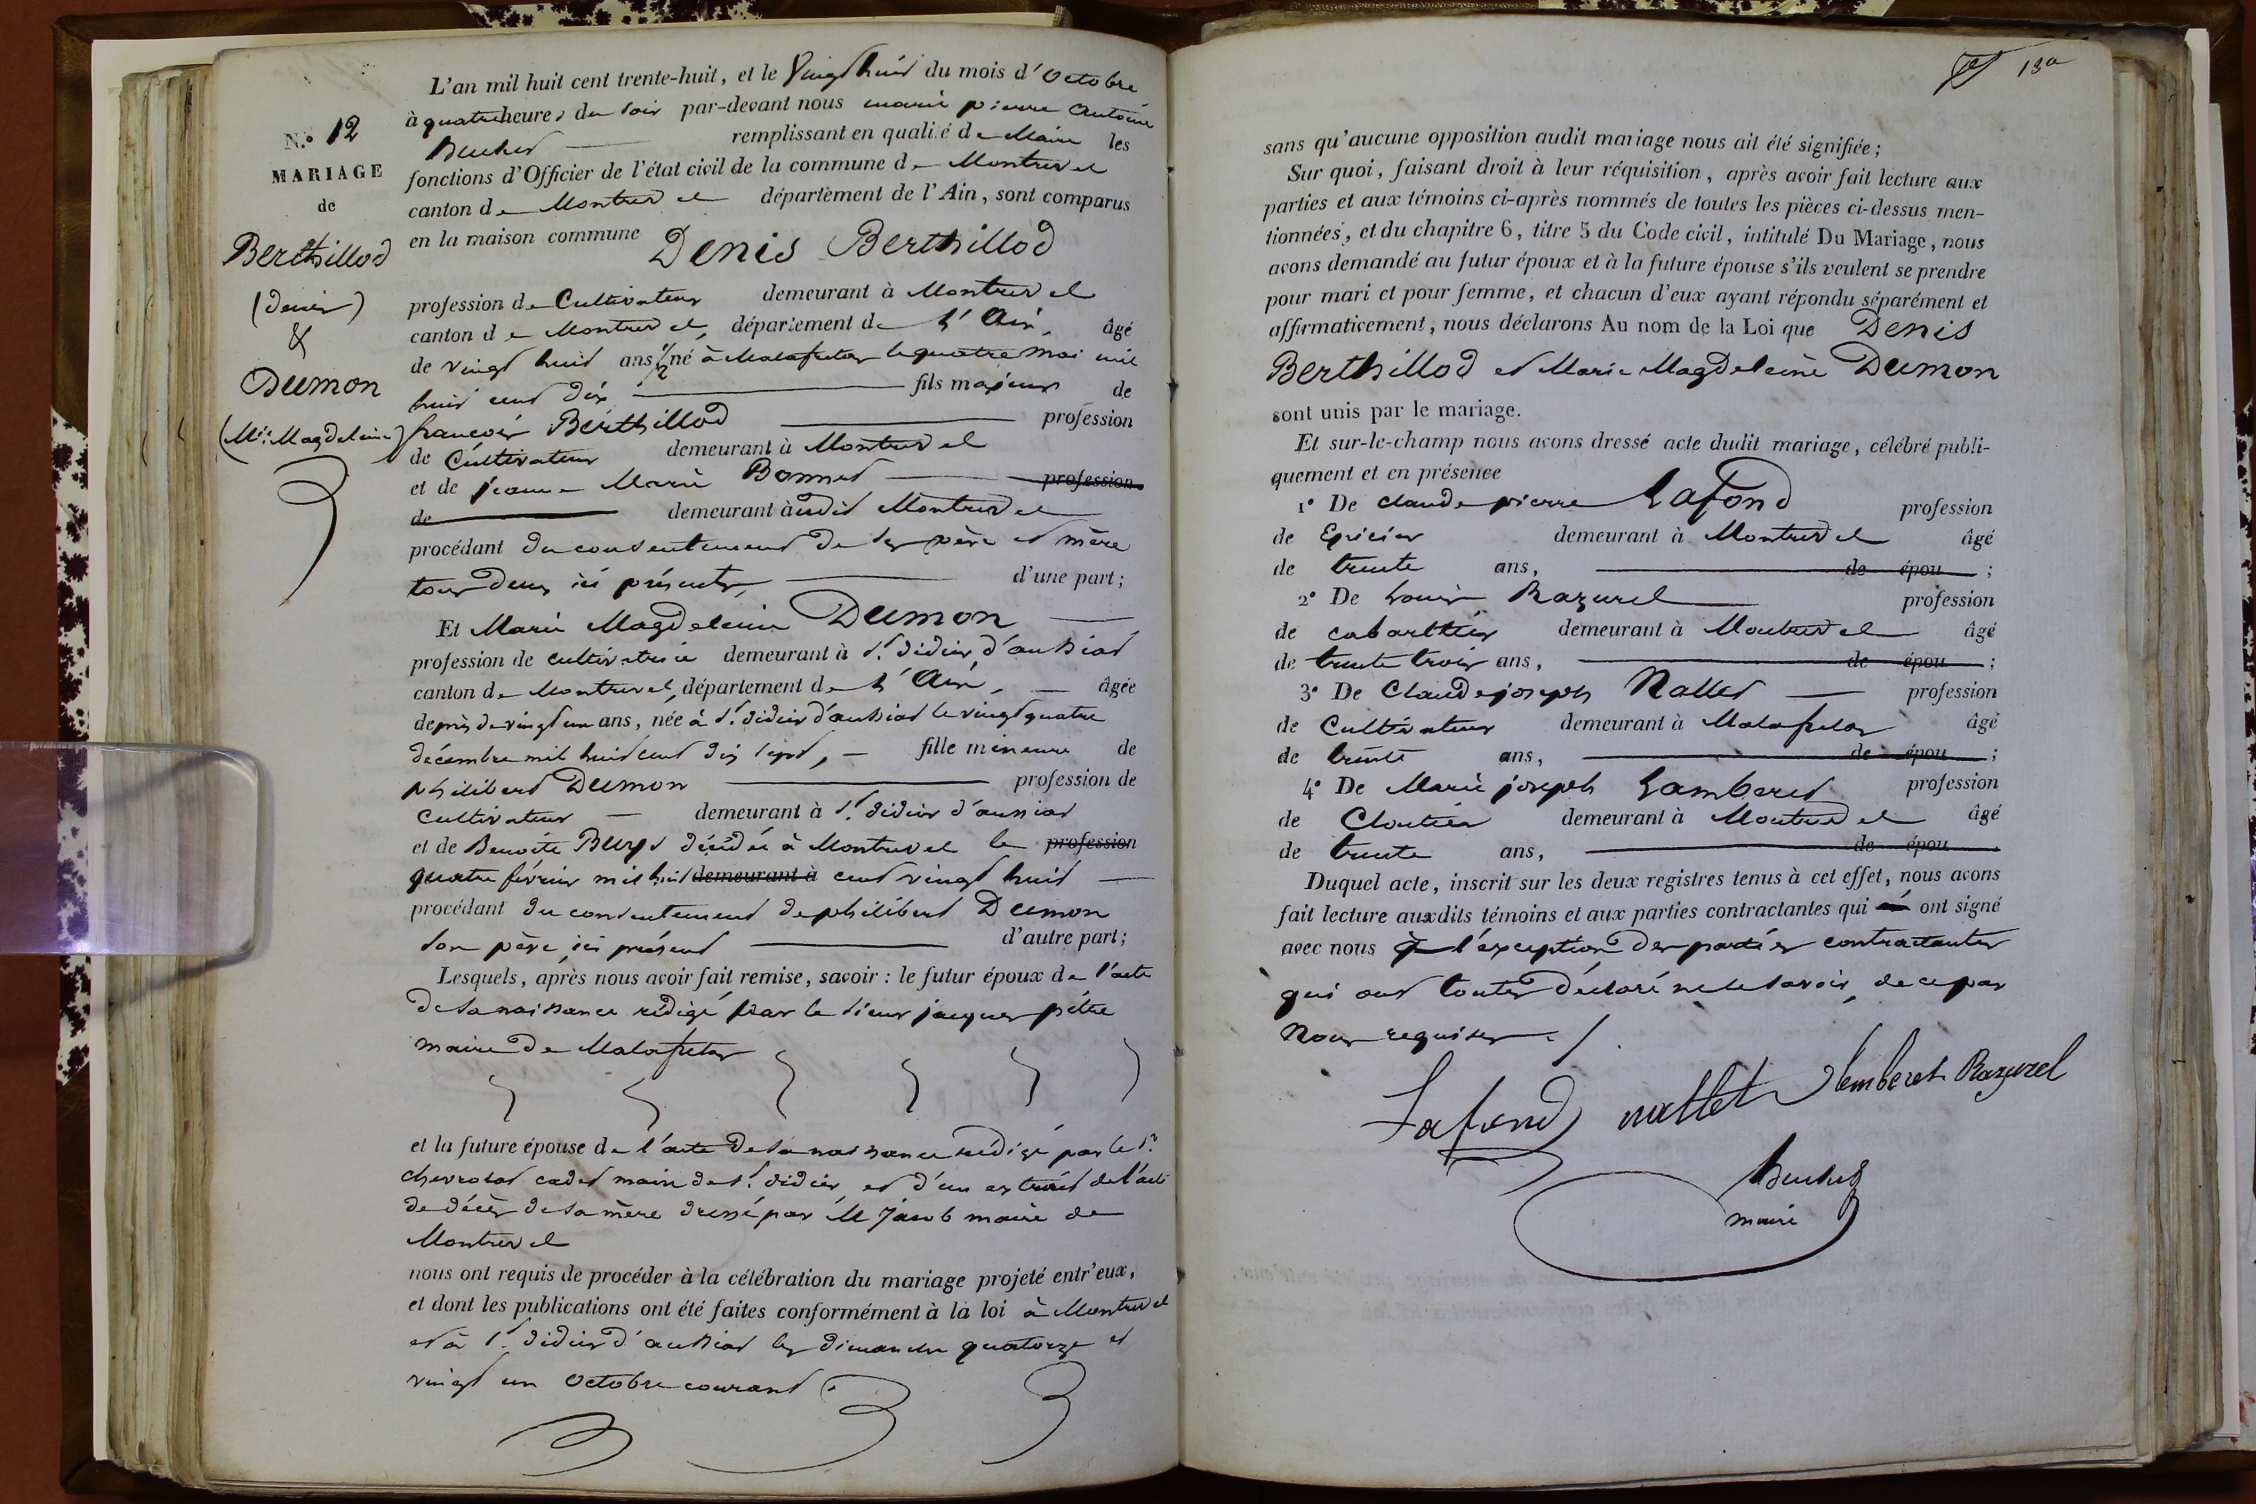 N.º 12
MARIAGE
de
Berthillod
(denis)
&
Dumon
(Mie Magdeleine)
L'an mil huit cent trente-huit, et le Vingt huit du mois d'Octobre
à quatre heures du soir par-devant nous marie pierre Antoine
remplissant en qualité de Maire les
fonctions d'Officier de l'état civil de la commune de Montrevel
canton de Montrevel département de l'Ain, sont comparus
en la maison commune Denis Berthillod
profession de Cultivateur demeurant à Montrevel
canton de Montrevel, département de L'Ain, âgé
de vingt huit ans 1/2 né à Malafretaz le quatre mai mil
huit cent dix fils majeur de
françois Berthillod profession
de Cultivateur demeurant à Montrevel
et de jeanne Marie Bonnet profession
de demeurant àudit Montrevel
procédant du consentement de ses père et mère
tous deux ici présents, d'une part;
Et Marie Magdeleine Dumon
profession de cultivatrice demeurant à St. didier d'aussiat
canton de Montrevel, département de L'Ain, âgée
de près de vingt un ans, née à St. didier d'aussiat le vingt quatre
décembre mil huit cent dix sept, fille mineure de
philibert Dumon profession de
Cultivateur demeurant à St. didier d'aussiat
et de Benoite décédée à Montrevel le profession
quatre février mil huit demeurant à cent vingt huit
procédant du consentement de philibert Dumon
son père, ici présent d'autre part;
Lesquels, après nous avoir fait remise, savoir: le futur époux de l'acte
de sa naissance rédigé par le sieur jacques pitre
maire de Malafretaz
et la future épouse de l'acte de sa naissance rédigé par le Sr.
cadet maire de St. didier et d'un extrait de l'acte
de décès de sa mère dressé par M Jacob maire de
Montrevel
nous ont requis de procéder à la célébration du mariage projeté entr'eux,
et dont les publications ont été faites conformément à la loi à Montrevel
et à St. didier d'aussiat les dimanche quatorze et
vingt un Octobre courant.
13
sans qu'aucune opposition audit mariage nous ait été signifiée;
Sur quoi, faisant droit à leur réquisition, après avoir fait lecture aux
parties et aux témoins ci-après nommés de toutes les pièces ci-dessus men-
tionnées, et du chapitre 6, titre 5 du Code civil, intitulé Du Mariage, nous
avons demandé au futur époux et à la future épouse s'ils veulent se prendre
pour mari et pour femme, et chacun d'eux ayant répondu séparément et
affirmativement, nous déclarons Au nom de la Loi que Denis
Berthillod et Marie Magdeleine Dumon
sont unis par le mariage.
Et sur-le-champ nous avons dressé acte dudit mariage, célébré publi-
quement et en présence
1º De claude pierre Lafond profession
de Epicier demeurant à Montrevel âgé
de trente ans, de épou ;
2º De Louis Razurel profession
de cabartier demeurant à Montrevel âgé
de trente trois ans, de épou ;
3º De Claude joseph Nallet profession
de Cultivateur demeurant à Malafretaz âgé
de trente ans, de épou ;
4º De Marie joseph Lamberet profession
de Cloutier demeurant à Montrevel âgé
de trente ans, de épou
Duquel acte, inscrit sur les deux registres tenus à cet effet, nous avons
fait lecture auxdits témoins et aux parties contractantes qui ont signé
avec nous à l'exception des parties contractantes
qui ont toutes déclaré ne le savoir, de ce par
Nous requises ./.
Lafond nallet lamberet Razurel
maire